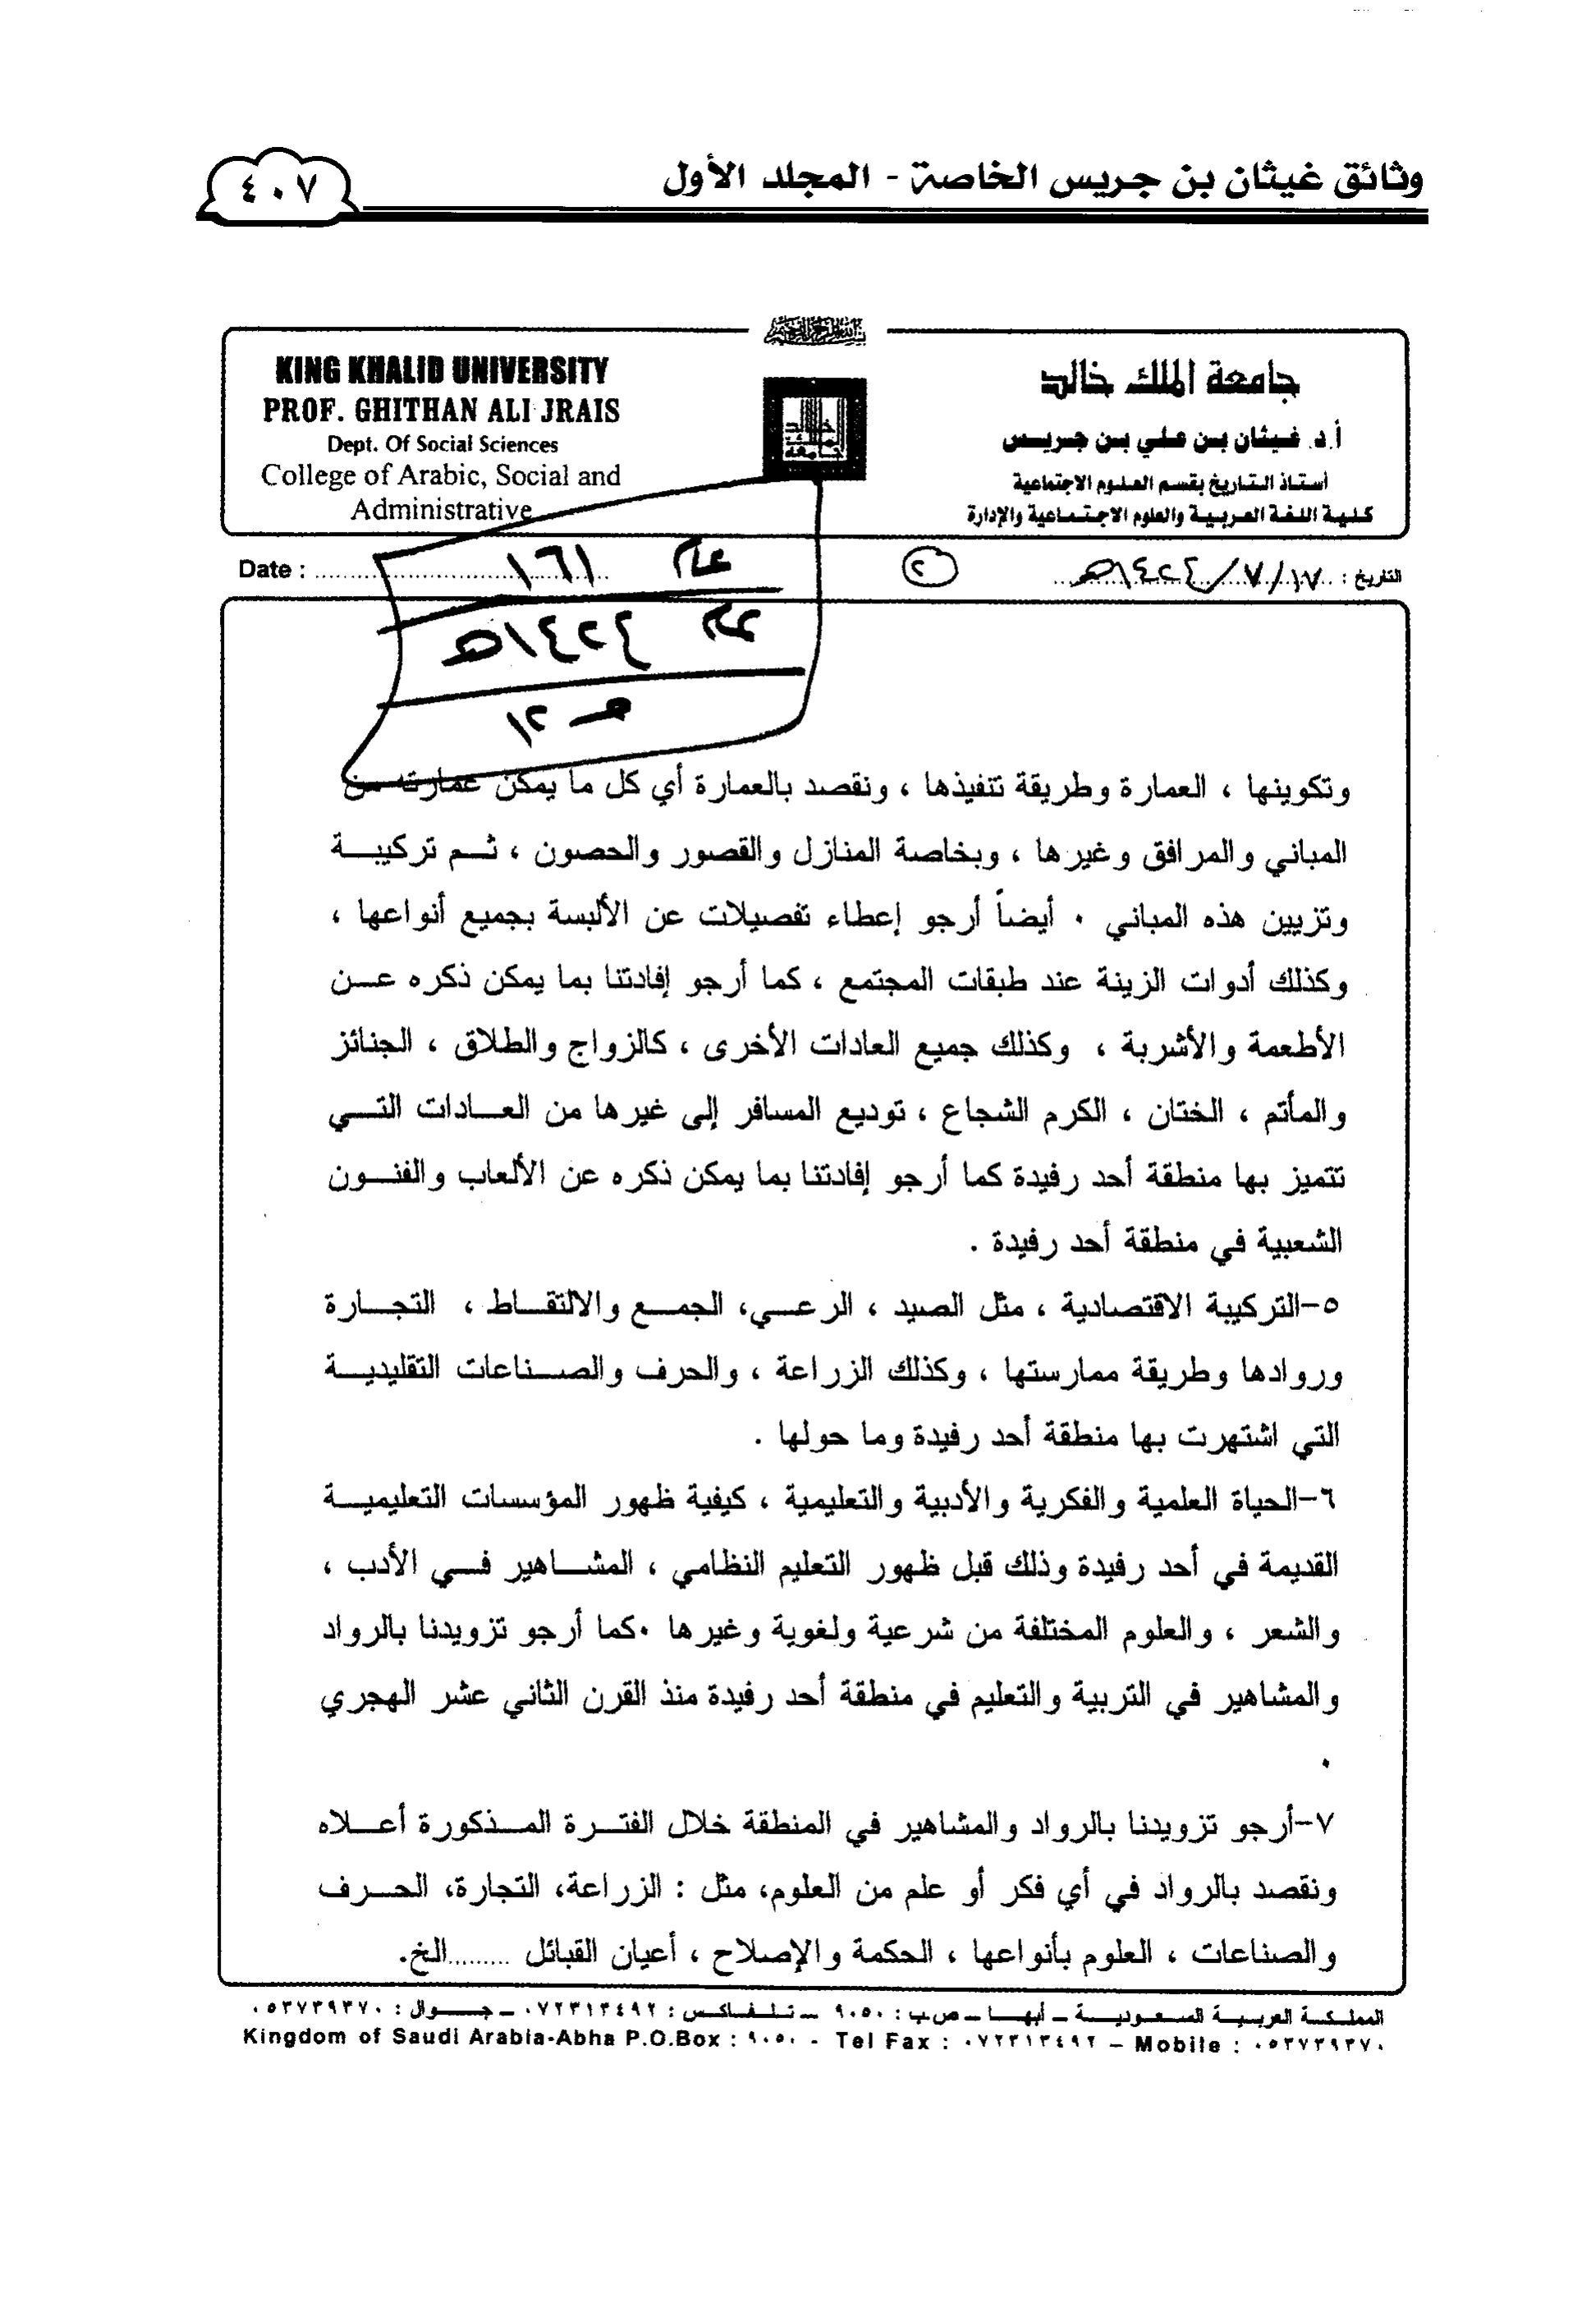 وثائق غيثان بن جريس الخاصة - المجلد الأول
٤٠٧
جامعة الملك خالد
أ.د. غيثان بن علي بن جريس
أستاذ التاريخ بقسم العلوم الاجتماعية
كلية اللغة العربية والعلوم الاجتماعية والإدارة
KING KHALID UNIVERSITY
PROF. GHITHAN ALI JRAIS
Dept. Of Social Sciences
College of Arabic, Social and
Administrative
التاريخ : ١٧/٧/١٤٢٤هـ
٢
Date :
عام ١٦١
١٤٢٤هـ
١٢
وتكوينها ، العمارة وطريقة تنفيذها ، ونقصد بالعمارة أي كل ما يمكن عمارته من
المباني والمرافق وغيرها ، وبخاصة المنازل والقصور والحصون ، ثم تركيبة
وتزيين هذه المباني ٠ أيضاً أرجو إعطاء تفصيلات عن الألبسة بجميع أنواعها ،
وكذلك أدوات الزينة عند طبقات المجتمع ، كما أرجو إفادتنا بما يمكن ذكره عن
الأطعمة والأشربة ، وكذلك جميع العادات الأخرى ، كالزواج والطلاق ، الجنائز
والمأتم ، الختان ، الكرم الشجاع ، توديع المسافر إلى غيرها من العادات التي
تتميز بها منطقة أحد رفيدة كما أرجو إفادتنا بما يمكن ذكره عن الألعاب والفنون
الشعبية في منطقة أحد رفيدة .
٥-التركيبة الاقتصادية ، مثل الصيد ، الرعي، الجمع والالتقاط ، التجارة
وروادها وطريقة ممارستها ، وكذلك الزراعة ، والحرف والصناعات التقليدية
التي اشتهرت بها منطقة أحد رفيدة وما حولها .
٦-الحياة العلمية والفكرية والأدبية والتعليمية ، كيفية ظهور المؤسسات التعليمية
القديمة في أحد رفيدة وذلك قبل ظهور التعليم النظامي ، المشاهير في الأدب ،
والشعر ، والعلوم المختلفة من شرعية ولغوية وغيرها ٠كما أرجو تزويدنا بالرواد
والمشاهير في التربية والتعليم في منطقة أحد رفيدة منذ القرن الثاني عشر الهجري
٠
٧-أرجو تزويدنا بالرواد والمشاهير في المنطقة خلال الفترة المذكورة أعلاه
ونقصد بالرواد في أي فكر أو علم من العلوم، مثل : الزراعة، التجارة، الحرف
والصناعات ، العلوم بأنواعها ، الحكمة والإصلاح ، أعيان القبائل .........الخ.
المملكة العربية السعودية – أبها – ص.ب : ٩٠٥٠ – تلفاكس : ٠٧٢٣١٣٤٩٢ – جوال : ٠٥٣٧٣٩٣٧٠
Kingdom of Saudi Arabia-Abha P.O.Box : ٩٠٥٠ - Tel Fax : ٠٧٢٣١٣٤٩٢ – Mobile : ٠٥٣٧٣٩٣٧٠